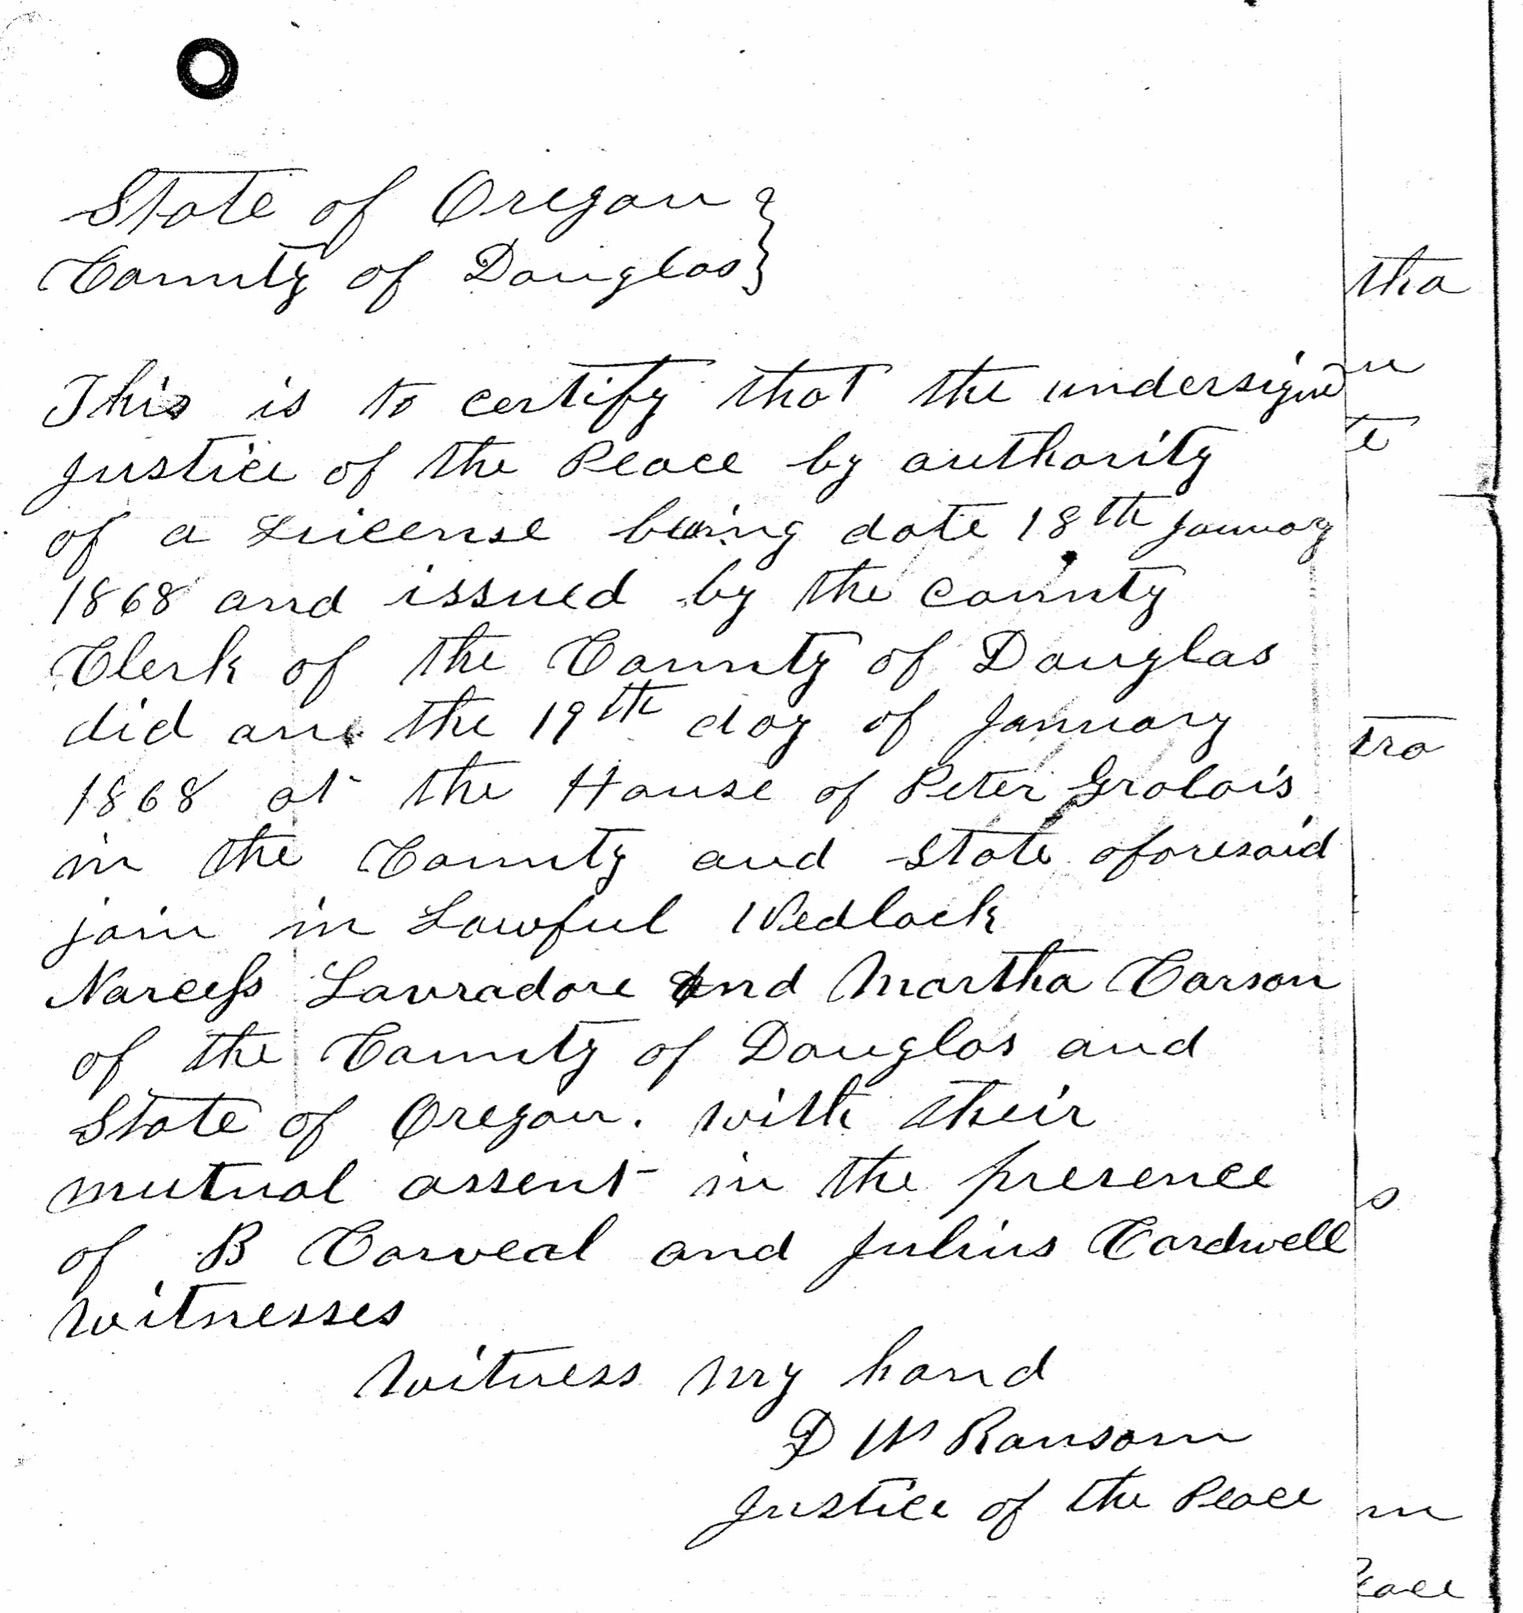 State of Oregon }
County of Douglas }
This is to certify that the undersigned
Justice of the Peace by authority
of a License being date 18th January
1868 and issued by the county
Clerk of the County of Douglas
did on the 19th day of January
1868 at the House of Peter Grolois
in the County and State aforesaid
join in Lawful Wedlock
Narcess Lavradore and Martha Carson
of the County of Douglas and
State of Oregon. with their
mutual assent in the presence
of B Corveal and Julius Cardwell
witnesses
Witness my hand
D W Ransom
Justice of the Peace
tha
u
te
tra
s
m